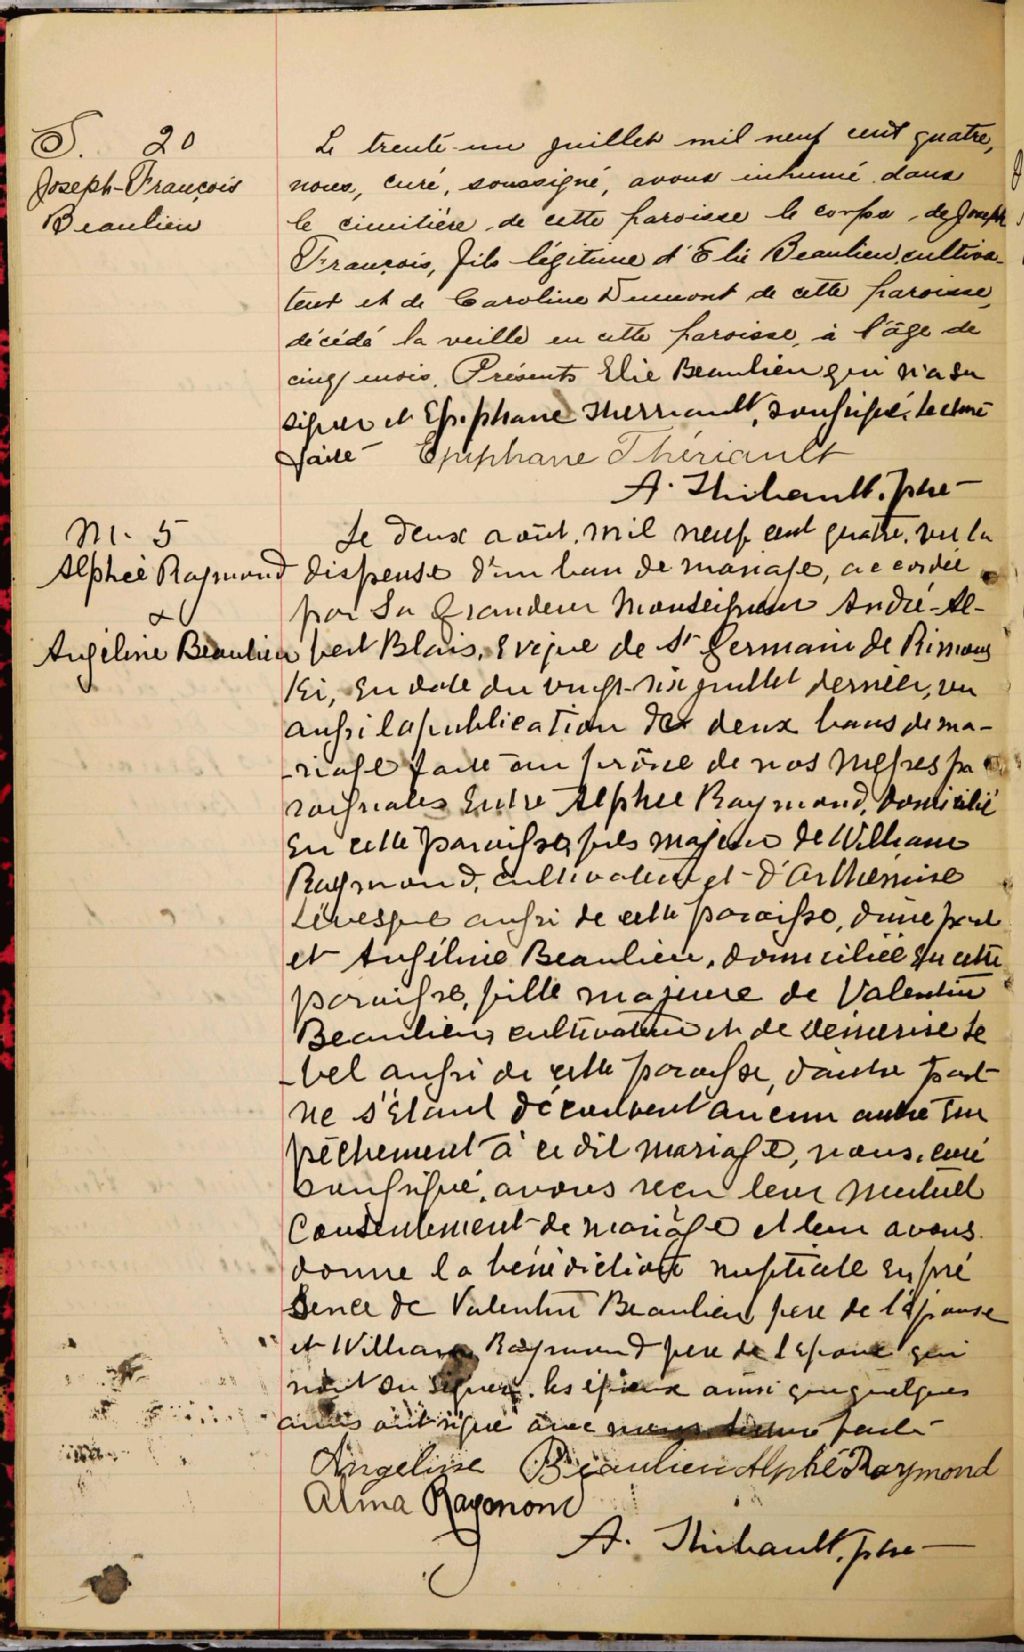 S. 20
Joseph-François
Beaulieu
Le trente-un juillet mil neuf cent quatre,
nous, curé, soussigné, avons inhumé dans
le cimitière de cette paroisse le corps de Joseph
François, fils légitime d'Elie Beaulieu cultiva-
teur et de Caroline Dumont de cette paroisse,
décédé la veille en cette paroisse, à l'âge de
cinq mois. Présents Elie Beaulieu qui n'a su
signer et Epiphane Therriault, soussigné, lecture
faite Epiphane Thériault
A. Thibault, ptre
M. 5
Alphée Raymond
&
Angéline Beaulieu
Le deux août, mil neuf cent quatre, vu la
dispense d'un ban de mariage, accordée
par Sa Grandeur Monseigneur André-Al-
bert Blais, Evêque de St Germain de Rimous
Ki, en date du vingt-six juillet dernier, vu
aussi la publication de deux bans de ma-
-riage faite au prône de nos Messes pa
roissiales entre Alphée Raymond, domicilié
en cette paroisse, fils majeur de William
Raymond, cultivateur et d'Arthémise
Lévesque aussi de cette paroisse, d'une part
et Angéline Beaulieu, domiciliée en cette
paroisse, fille majeure de Valentin
Beaulieu, cultivateur et de Démerise Le
-bel aussi de cette paroisse, d'autre part
ne s'étant découvert aucun autre em
pêchement à ce dit mariage, nous, curé
soussigné, avons reçu leur mutuel
consentement de mariage et leur avons
donné la bénédiction nuptiale en pré
sence de Valentin Beaulieu père de l'épouse
et William Raymond père de l'époux qui
n'ont su signer. les époux ainsi que quelques
amis ont signé avec nous lecture faite
Angeline Beaulieu Alphé Raymond
Alma Raymond
A. Thibault, ptre